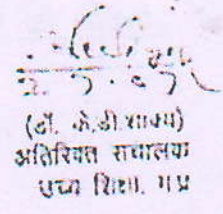 (डॉ. के.डी.शाक्य)
अतिरिक्त संचालक
उच्च शिक्षा, म.प्र